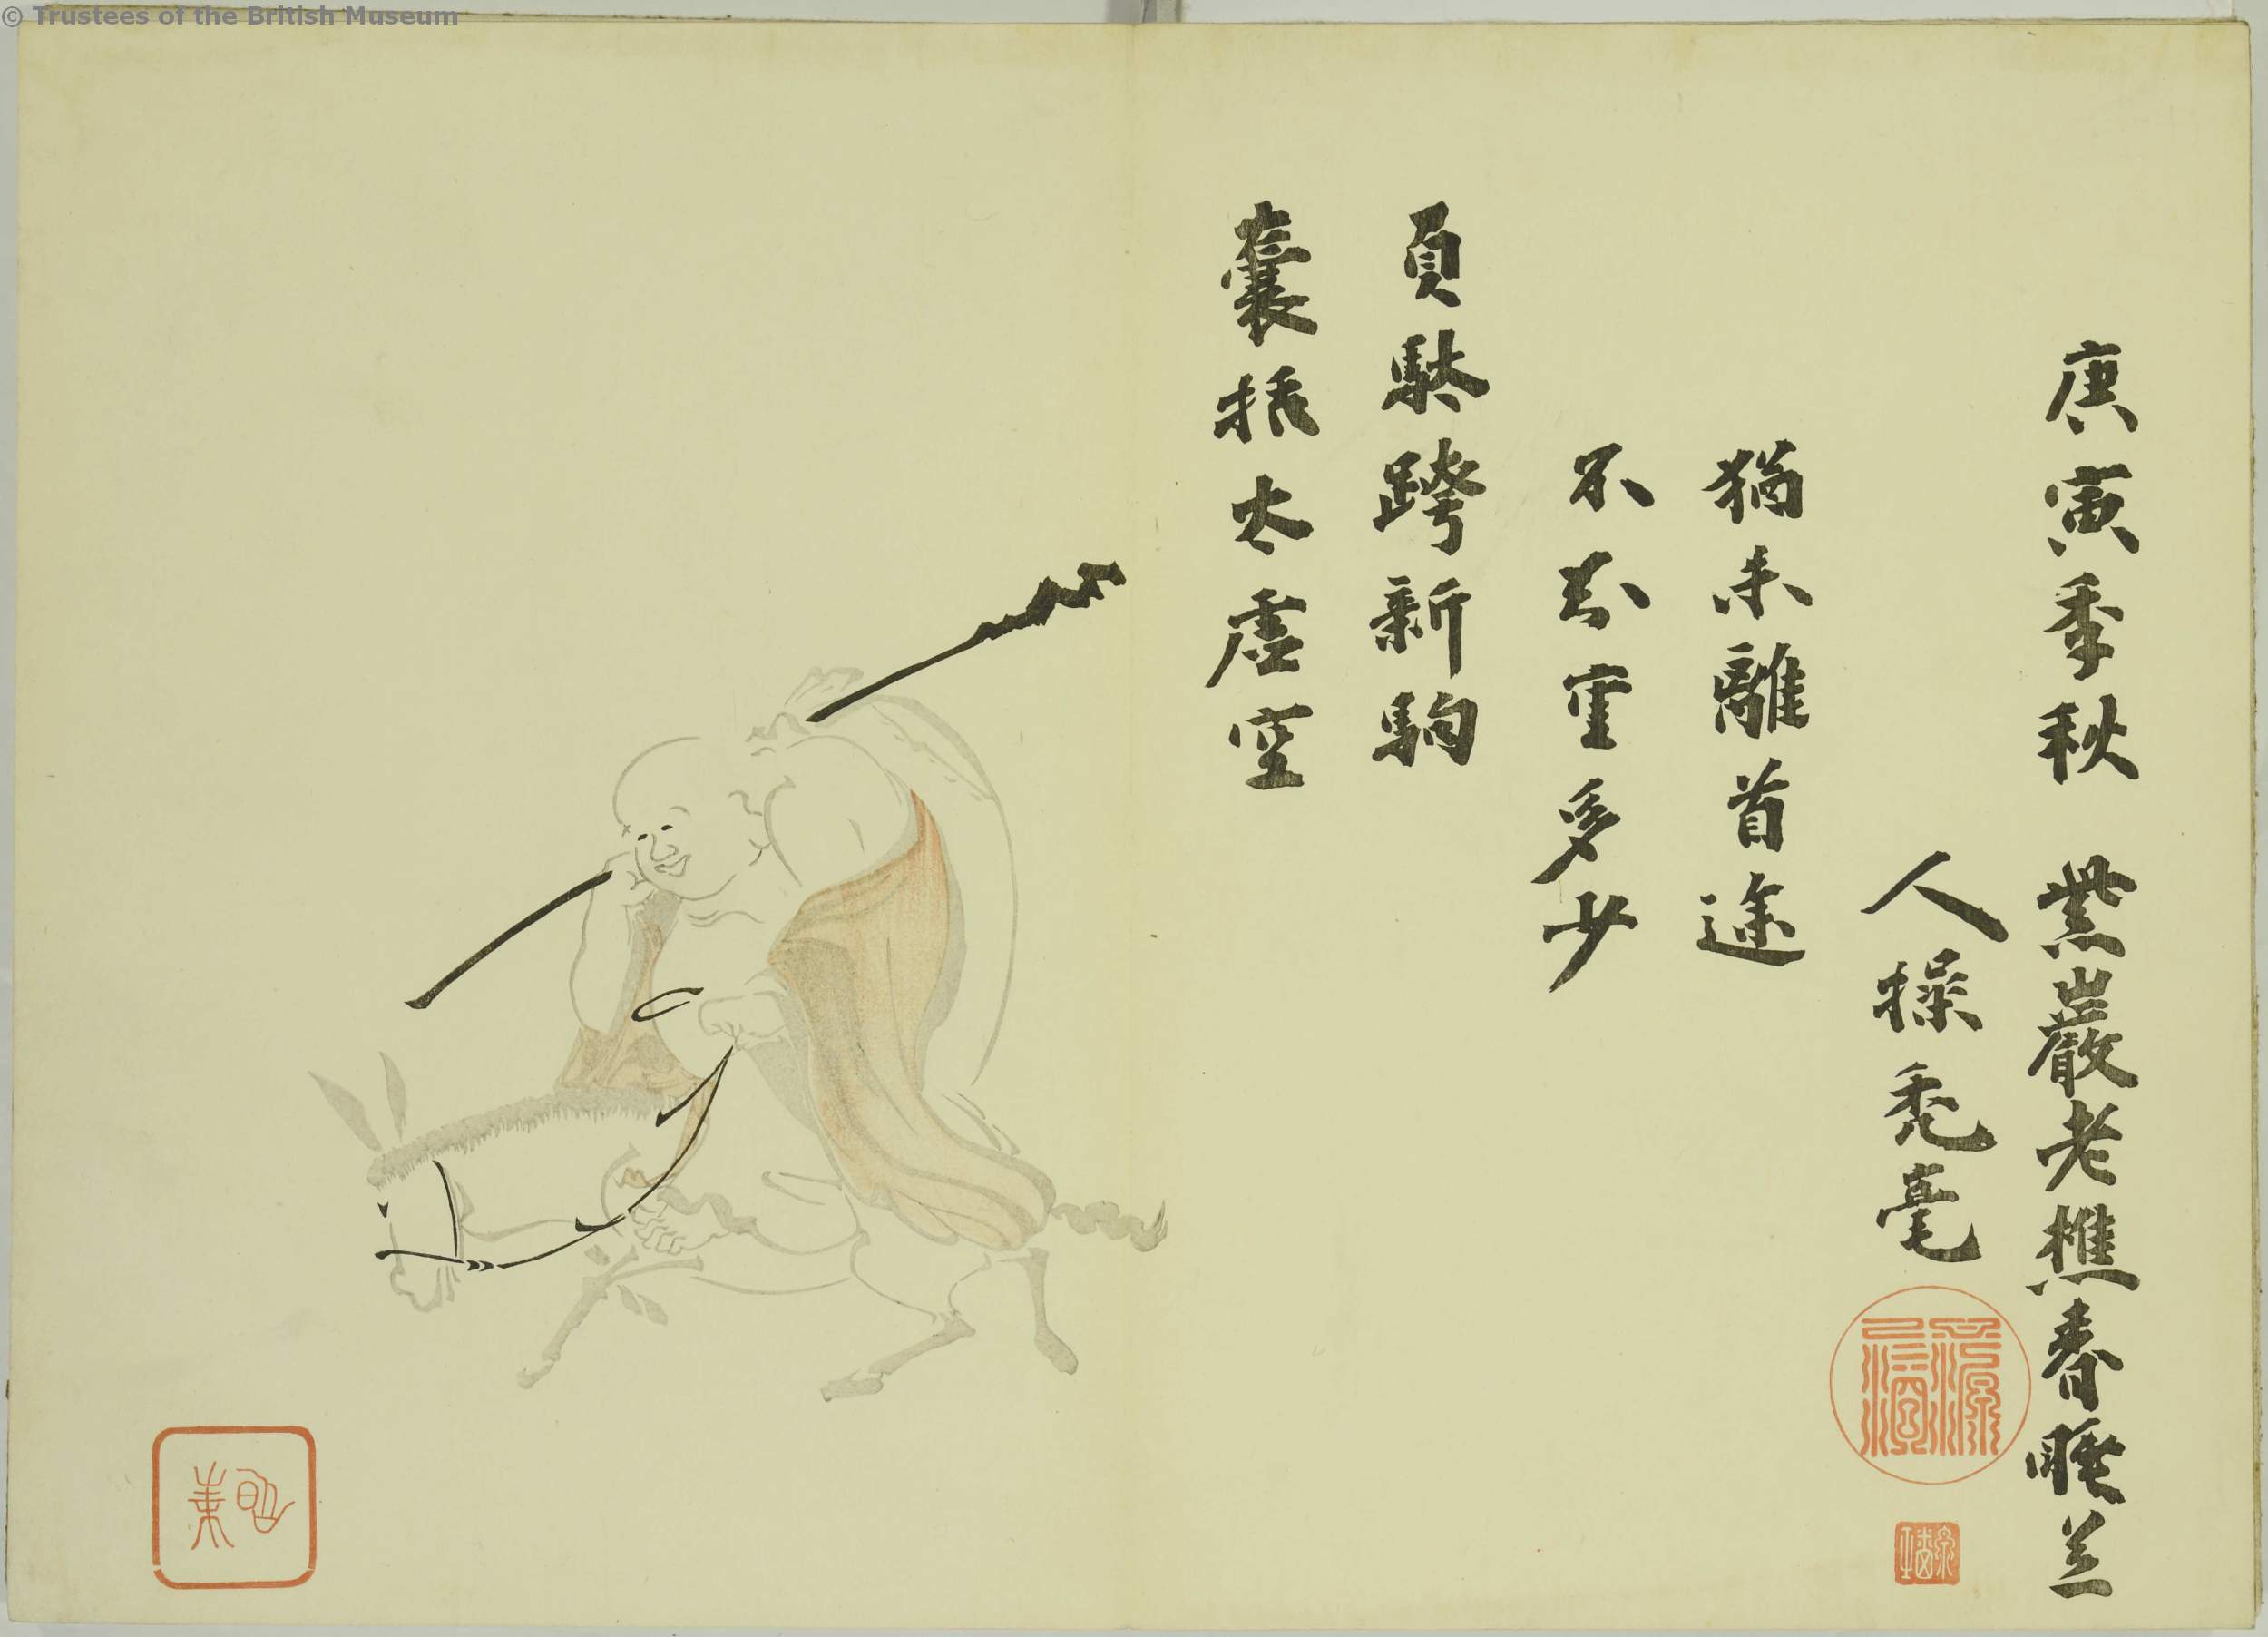 © Trustees of the British Museum
囊括太虚空
負駄跨新駒
不知重多少
猶未離首途
庚寅季秋 無巖老樵春睡
人操禿毫